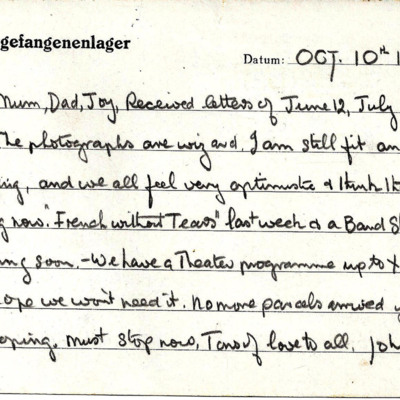 gefangenenlager
Datum: OCT. 10TH 1
Mum, Dad, Joy, Received letters of June 12, July
The photographs are wizard. I am still fit an
ing, and we all feel very optimistic & think th
g now. "French without Tears" last week & a Band S
ing soon. - We have a Theatre programme up to X
ope we won't need it. No more parcels arrived y
oping. Must stop now, Tons of love to all. Joh